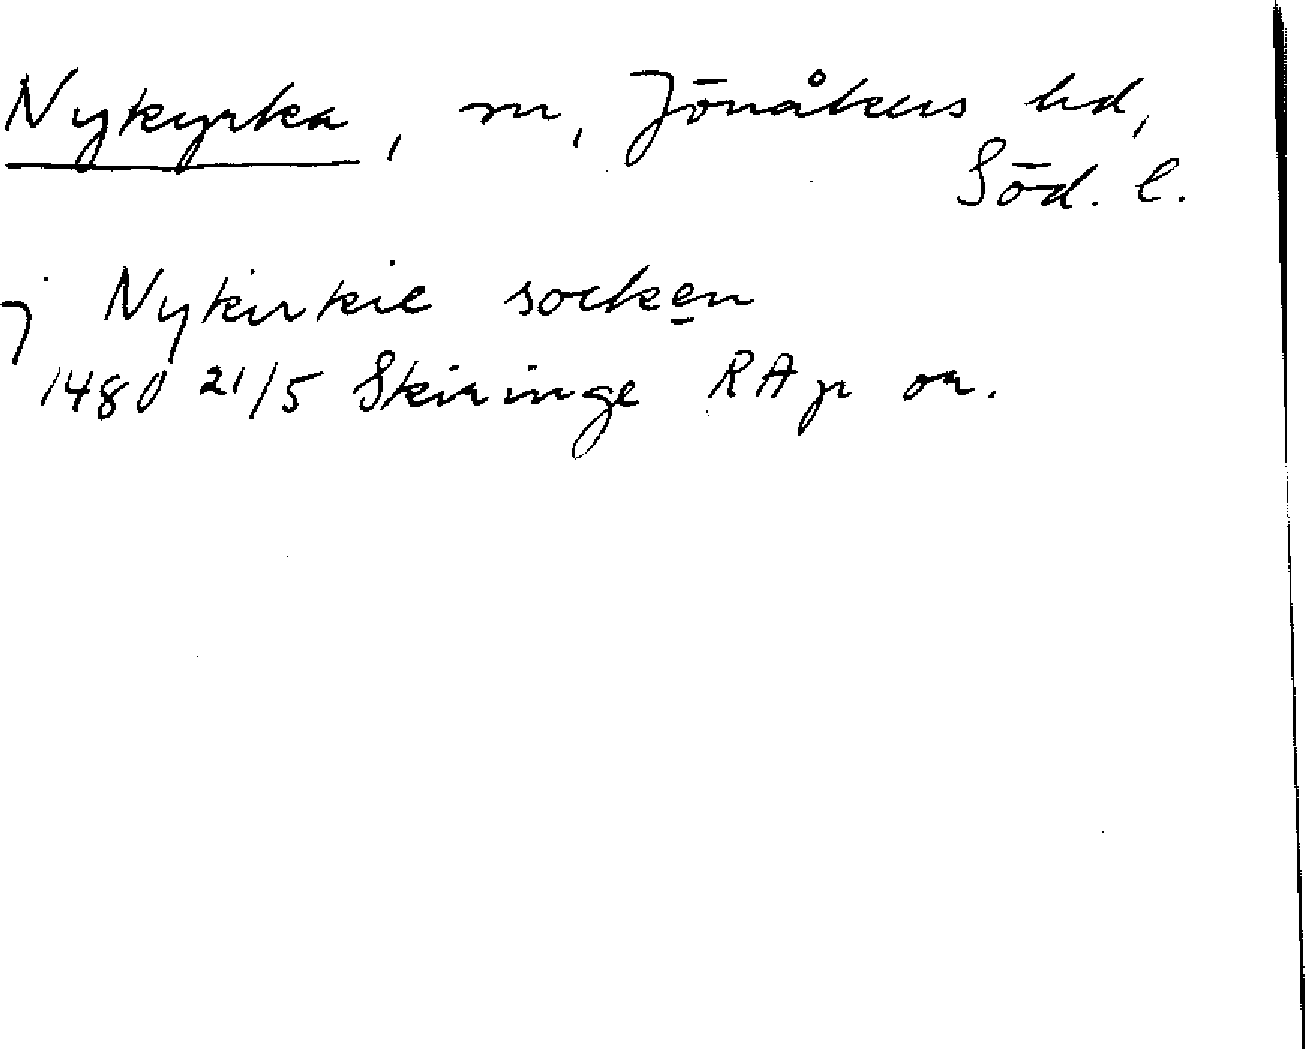 Nykyrka, sn, Jönåkers hd,
Söd. l.
j Nykirkie socken
1480 21/5 Skiringe RAp or.